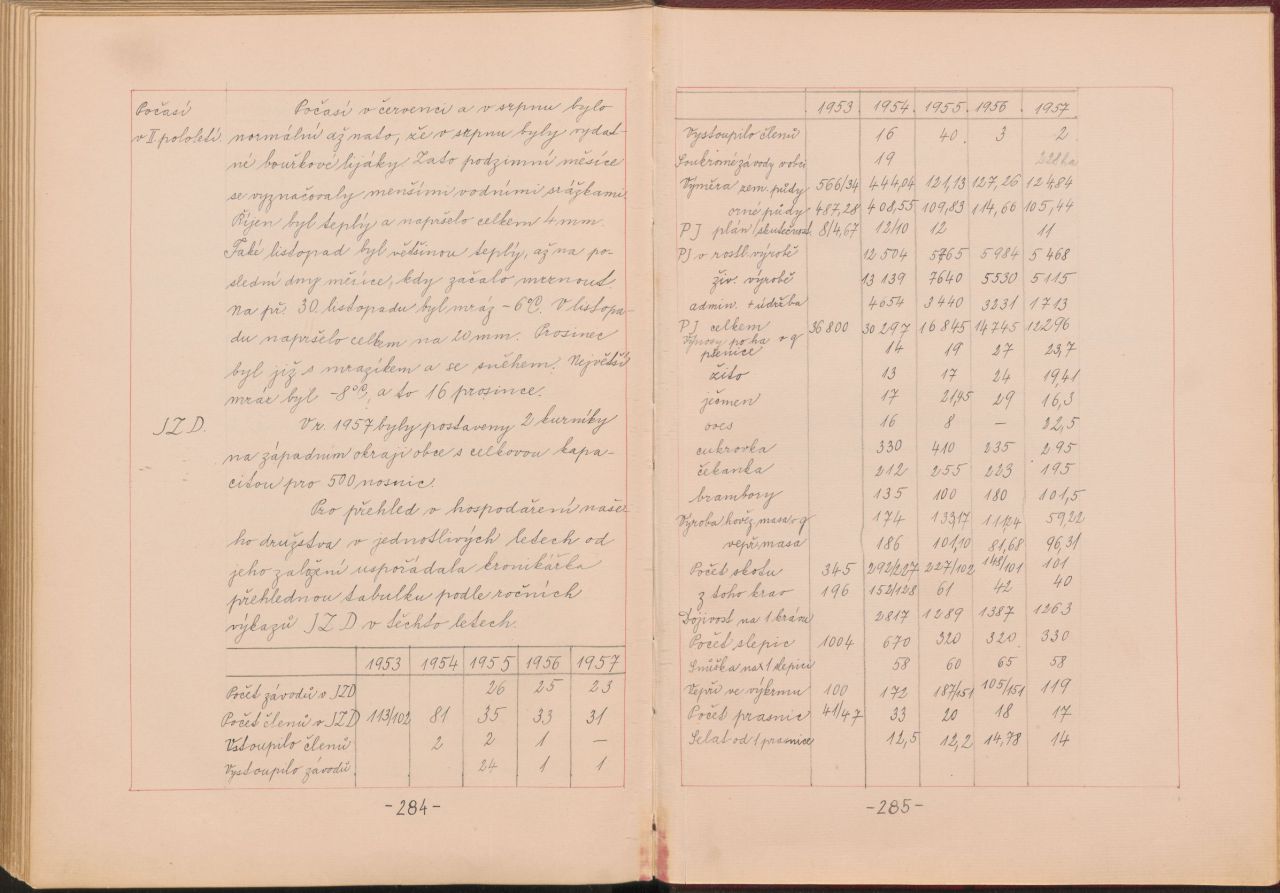 Počasí
v II. pololetí.
Počasí v červenci a v srpnu bylo
normální až na to, že v srpnu byly vydat-
né bouřkové lijáky. Zato podzimní měsíce
se vyznačovaly menšími vodními srážkami.
Říjen byl teplý a napršelo celkem 4 mm.
Také listopad byl většinou teplý, až na po-
slední dny měsíce, kdy začalo mrznout.
Na př. 30. listopadu byl mráz -6°C. V listopa-
du napršelo celkem na 20 mm. Prosinec
byl již s mrazíkem a se sněhem. Největší
mráz byl -8°C, a to 16 prosince.
JZD.
V r. 1957 byly postaveny 2 kurníky
na západním okraji obce s celkovou kapa-
citou pro 500 nosnic.
Pro přehled o hospodaření naše-
ho družstva v jednotlivých letech od
jeho založení uspořádala kronikářka
přehlednou tabulku podle ročních
výkazů JZD v těchto letech.
1953 1954 1955 1956 1957
Počet závodů v JZD 26 25 23
Počet členů v JZD 113/102 81 35 33 31
Vstoupilo členů 2 2 1 —
Vystoupilo závodů 24 1 1
-284-
1953 1954 1955 1956 1957
Vystoupilo členů 16 40 3 2
Soukromé závody v obci 19 228 ha
Výměra zem. půdy 566/34 444,04 121,13 127,26 124,84
orné půdy 487,28 408,55 109,83 114,66 105,44
PJ plán/skutečnost 8/4,67 12/10 12 11
PJ v rostl. výrobě 12 504 5765 5 984 5 468
živ. výrobě 13 139 7640 5530 5115
admin. + údržba 4654 3440 3231 1713
PJ celkem 36 800 30 297 16 845 14 745 12 296
Výnosy po ha v q
pšenice 14 19 27 23,7
žito 13 17 24 19,41
ječmen 17 21,45 29 16,3
oves 16 8 — 22,5
cukrovka 330 410 235 295
čekanka 212 255 223 195
brambory 135 100 180 101,5
Výroba hověz. masa v q 174 133,17 111,24 59,22
vepř. masa 186 101,10 81,68 96,31
Počet skotu 345 292/227 227/102 148/101 101
z toho krav 196 152/128 61 42 40
Dojivost na 1 krávu 2817 1289 1387 1263
Počet slepic 1004 670 320 320 330
Snůška na 1 slepici 58 60 65 58
Vepři ve výkrmu 100 172 187/151 105/151 119
Počet prasnic 41/47 33 20 18 17
Selat od 1 prasnice 12,5 12,2 14,78 14
-285-